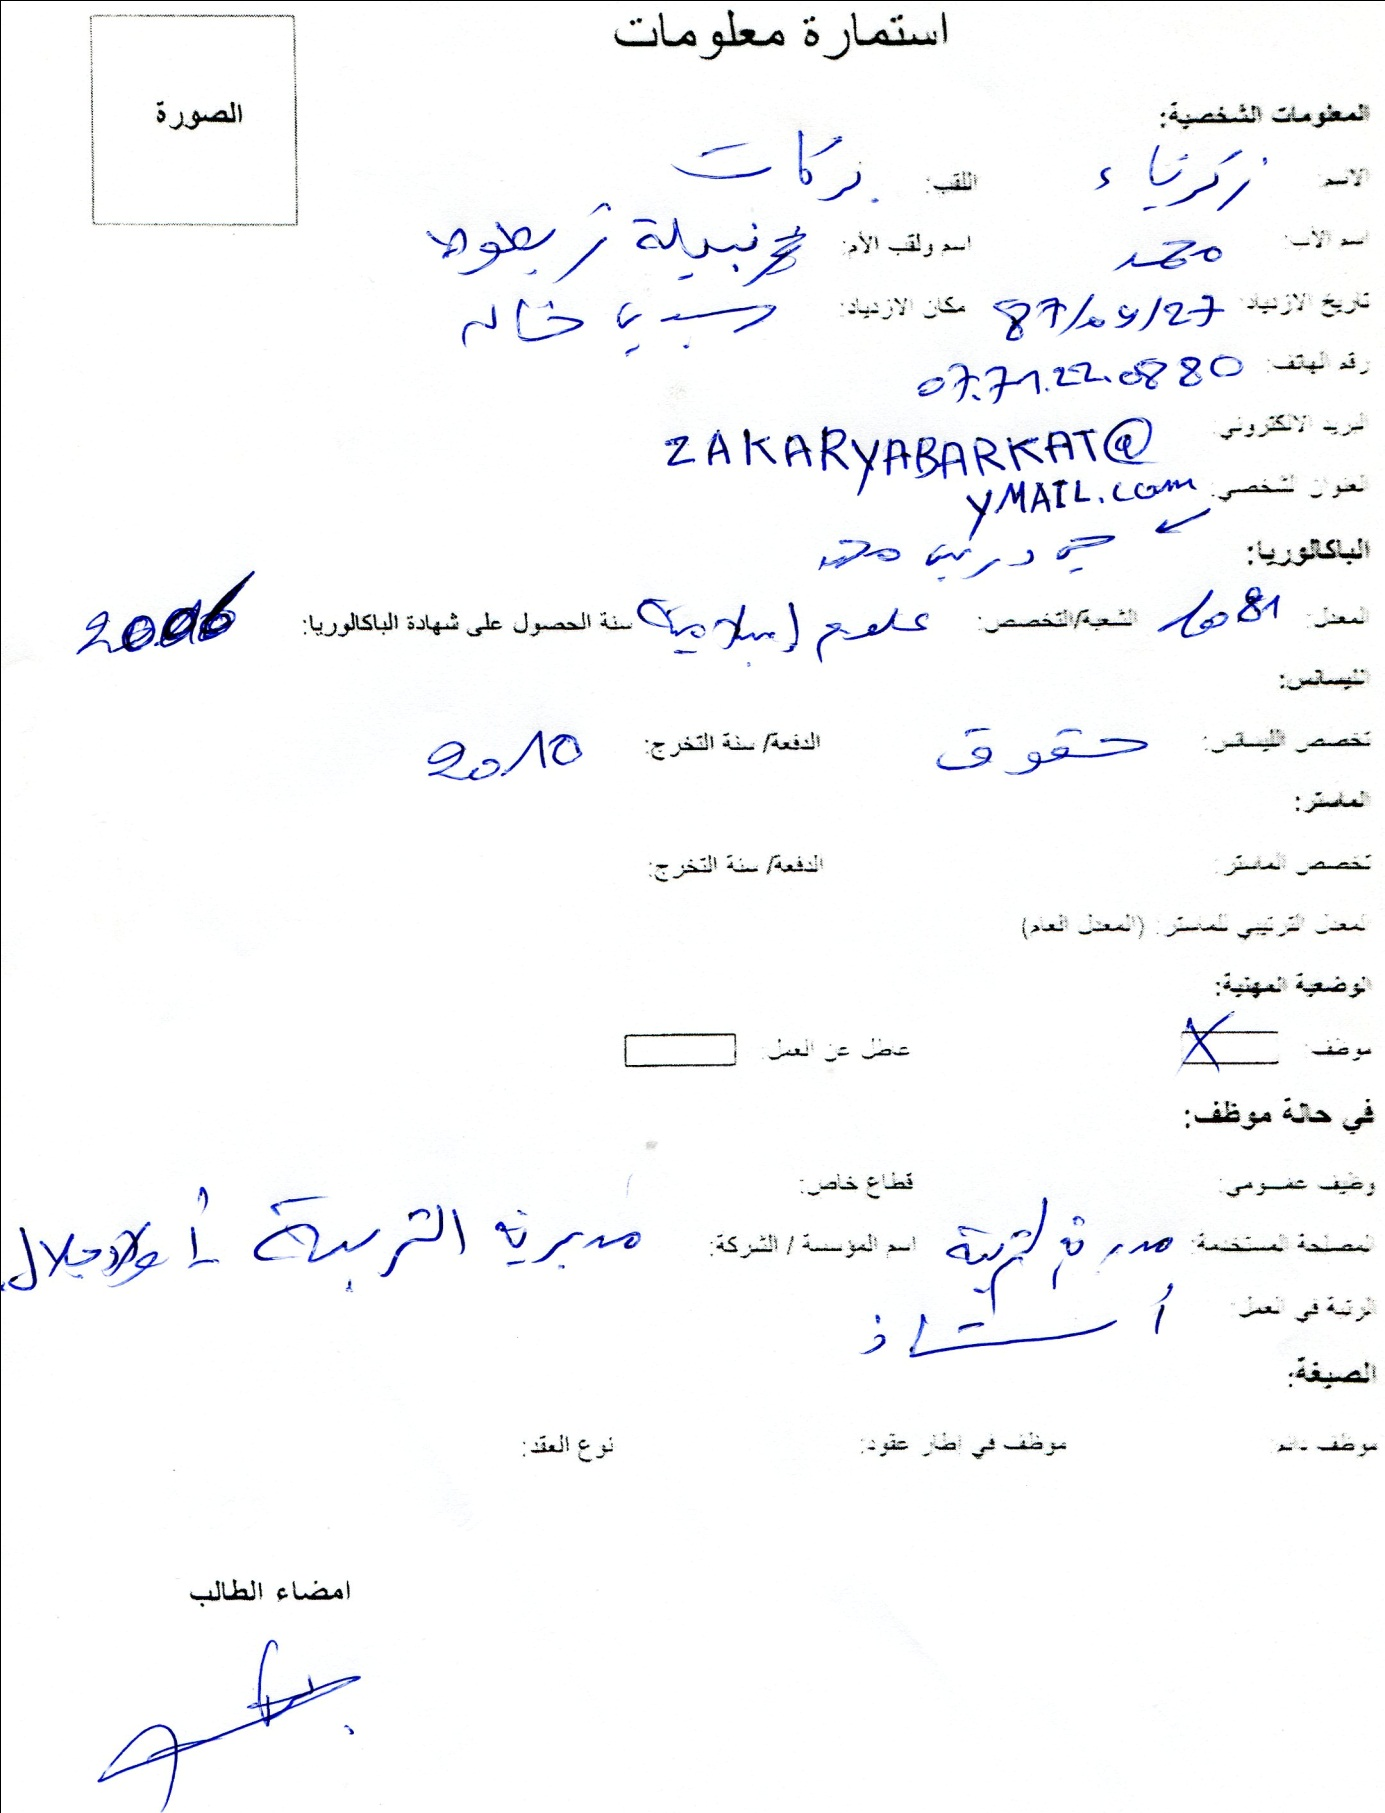 استمارة معلومات
الصورة
المعلومات الشخصية:
الاسم: زكرياء اللقب: بركات
اسم الأب: محمد اسم ولقب الأم: نبيلة
تاريخ الازدياد: 87/09/27 مكان الازدياد: سيدي خالد
رقم الهاتف: 07.71.22.0880
البريد الالكتروني: ZAKARYABARKAT@
YMAIL.com
العنوان الشخصي: حي محمد
الباكالوريا:
المعدل: 10.81 الشعبة/التخصص: علوم إسلامية سنة الحصول على شهادة الباكالوريا: 2006
الليسانس:
تخصص الليسانس: حقوق الدفعة/ سنة التخرج: 2010
الماستر:
تخصص الماستر: الدفعة/ سنة التخرج:
المعدل الترتيبي للماستر: (المعدل العام)
الوضعية المهنية:
موظف: X عاطل عن العمل:
في حالة موظف:
وظيف عمومي: قطاع خاص:
المصلحة المستخدمة: مديرية التربية اسم المؤسسة / الشركة: مديرية التربية - أولاد جلال
الرتبة في العمل: أستاذ
الصيغة:
موظف دائم: موظف في إطار عقود: نوع العقد:
امضاء الطالب